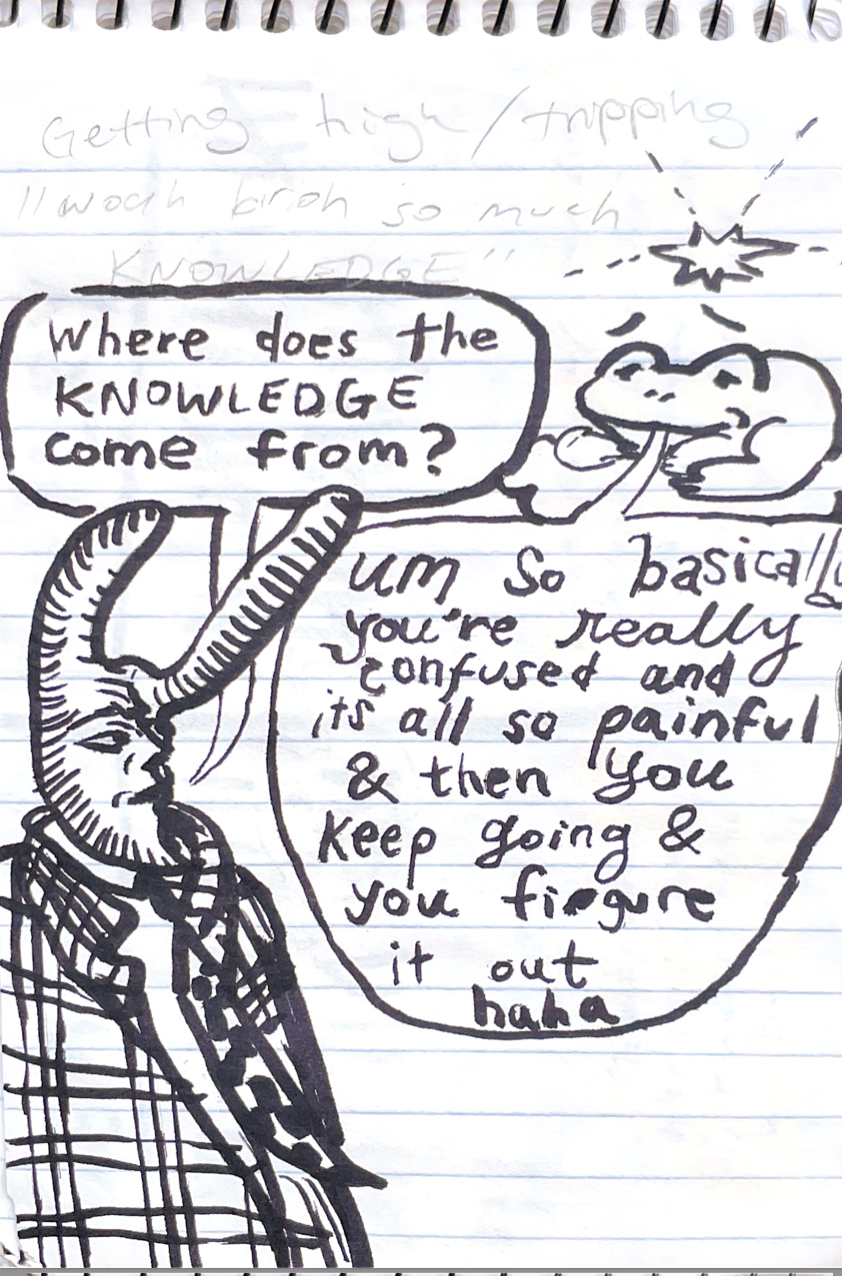 Getting high / tripping
"woah broh so much
KNOWLEDGE"
Where does the
KNOWLEDGE
come from?
um so basically
you're really
confused and
its all so painful
& then you
keep going &
you fiegure
it out
haha